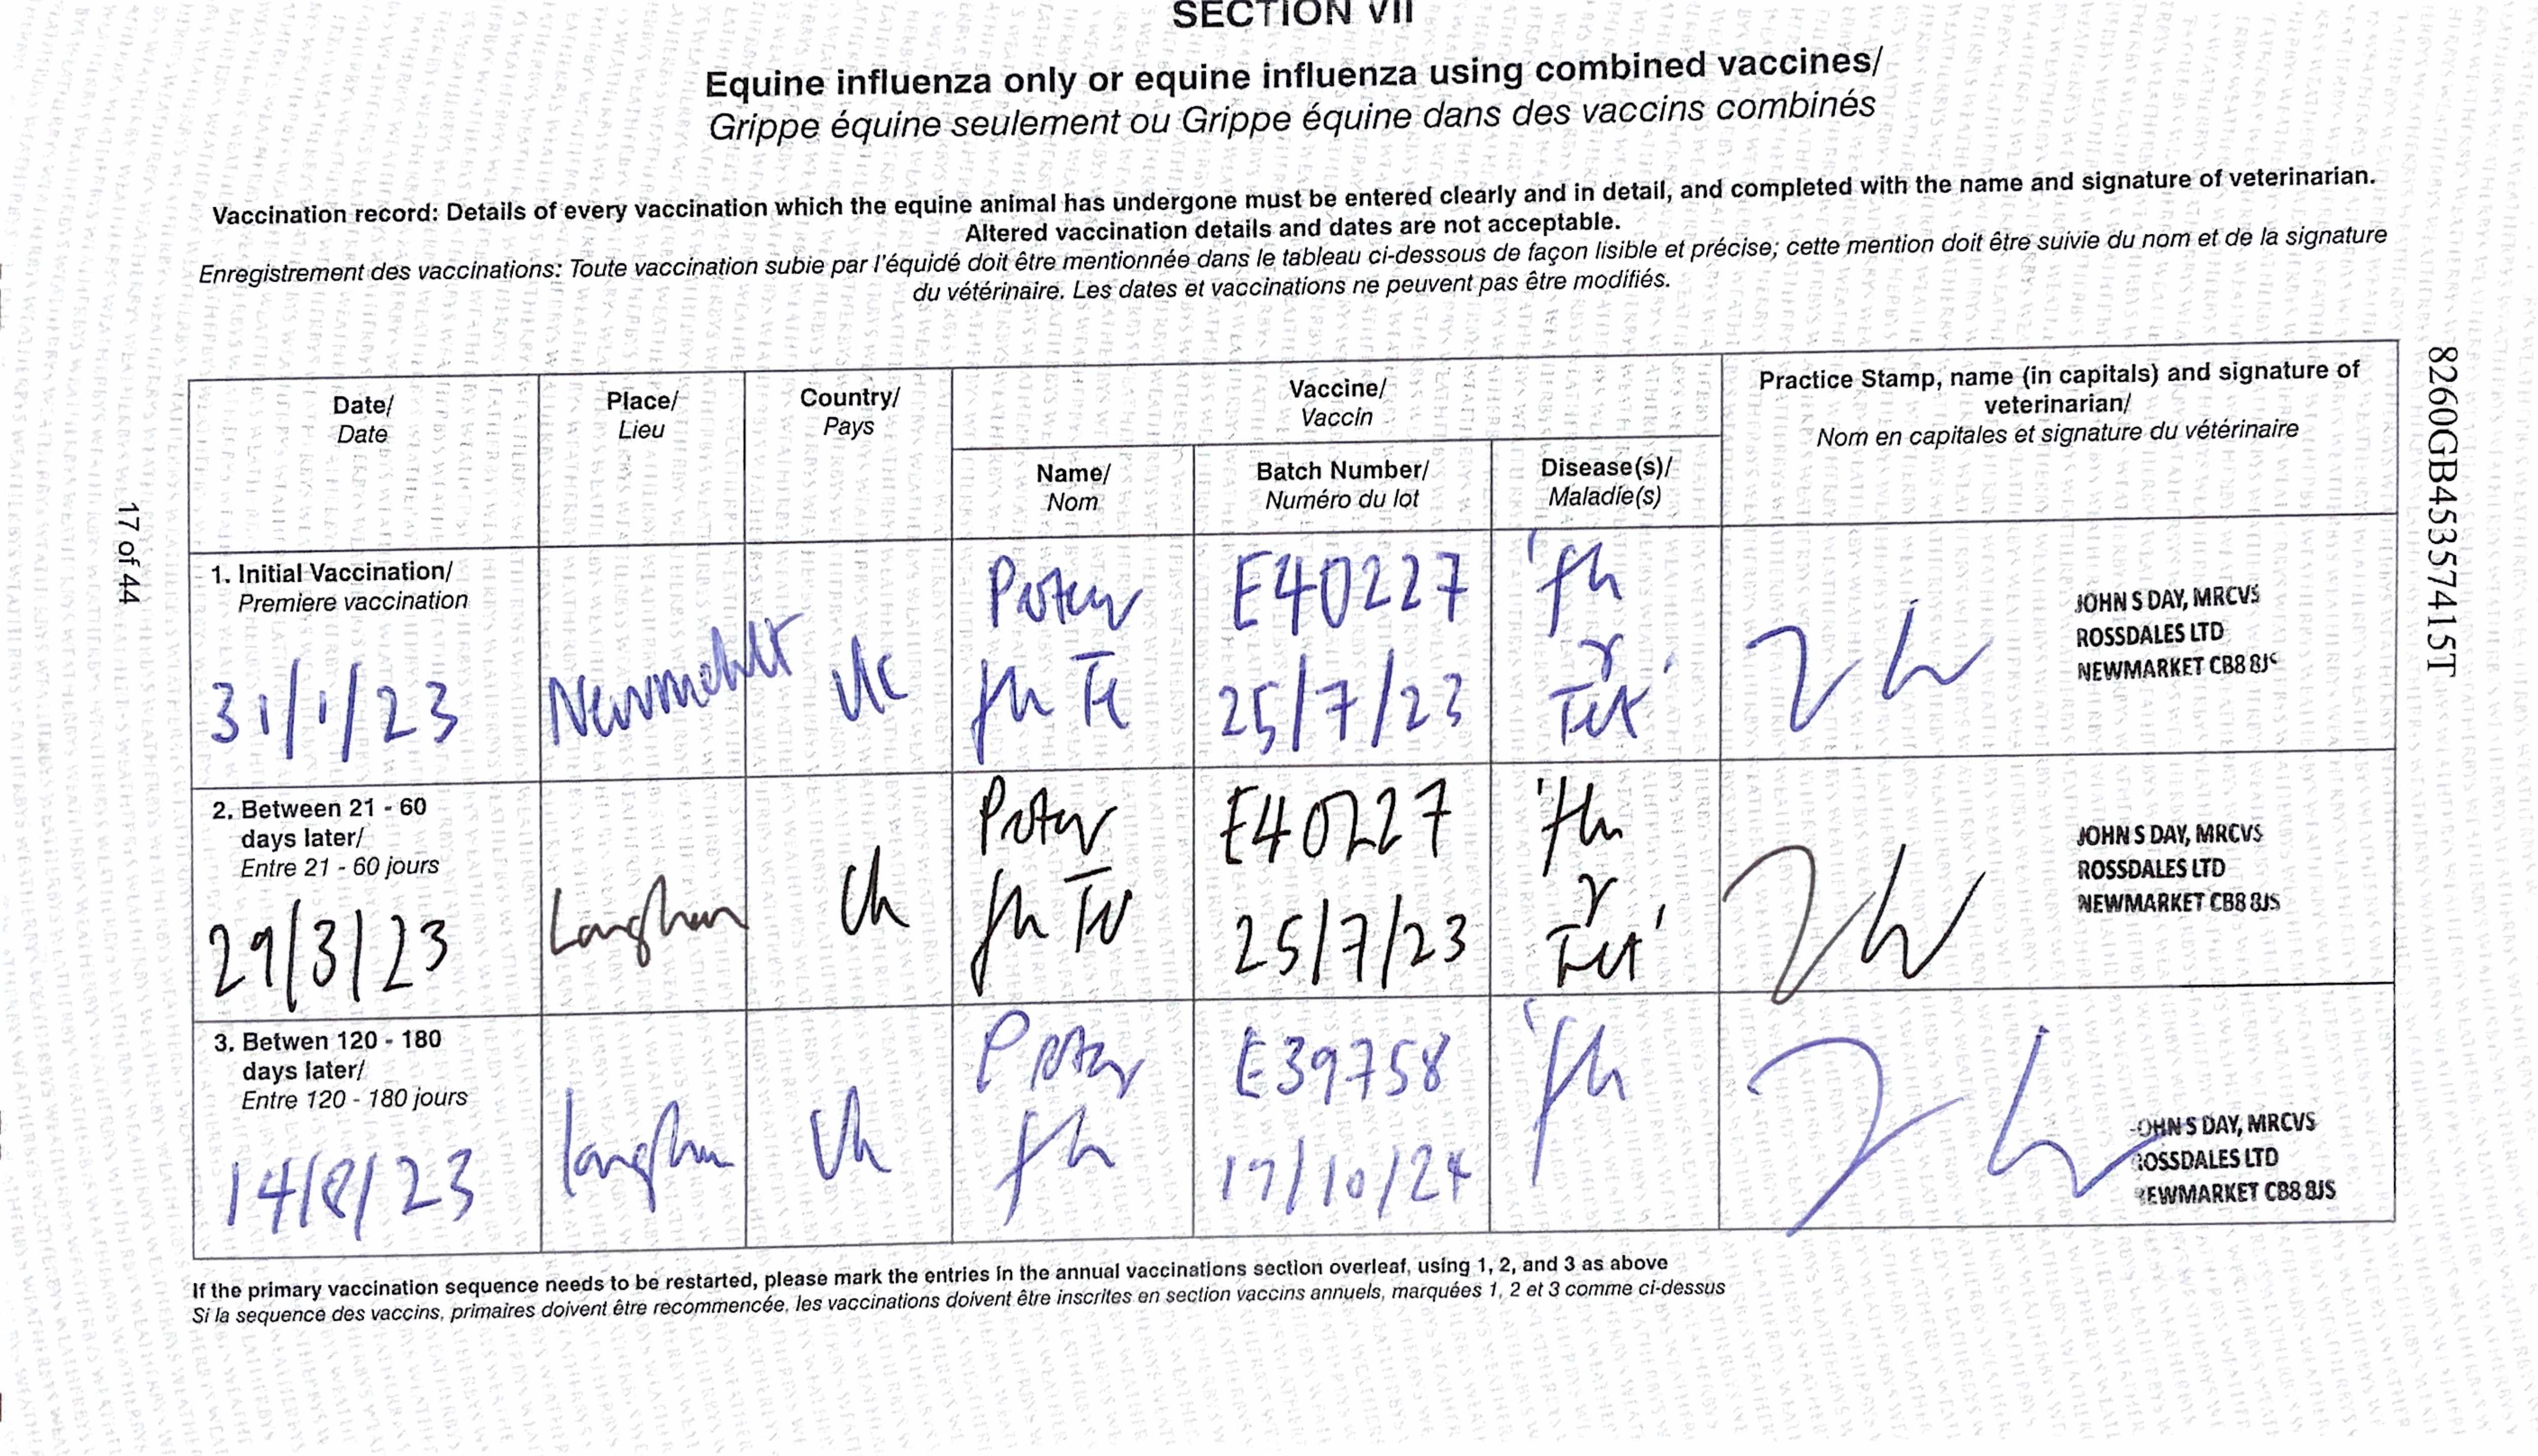 SECTION VII
Equine influenza only or equine influenza using combined vaccines/
Grippe équine seulement ou Grippe équine dans des vaccins combinés
Vaccination record: Details of every vaccination which the equine animal has undergone must be entered clearly and in detail, and completed with the name and signature of veterinarian.
Altered vaccination details and dates are not acceptable.
Enregistrement des vaccinations: Toute vaccination subie par l'équidé doit être mentionnée dans le tableau ci-dessous de façon lisible et précise; cette mention doit être suivie du nom et de la signature
du vétérinaire. Les dates et vaccinations ne peuvent pas être modifiés.
Date/
Date
Place/
Lieu
Country/
Pays
Vaccine/
Vaccin
Name/
Nom
Batch Number/
Numéro du lot
Disease(s)/
Maladie(s)
Practice Stamp, name (in capitals) and signature of
veterinarian/
Nom en capitales et signature du vétérinaire
1. Initial Vaccination/
Premiere vaccination
31/1/23
Newmarket
UK
E40227
25/7/23
Tet
JOHN S DAY, MRCVS
ROSSDALES LTD
NEWMARKET CB8 8JS
2. Between 21 - 60
days later/
Entre 21 - 60 jours
29/3/23
Langham
UK
E40227
25/7/23
Tet
JOHN S DAY, MRCVS
ROSSDALES LTD
NEWMARKET CB8 8JS
3. Betwen 120 - 180
days later/
Entre 120 - 180 jours
14/8/23
Langham
UK
E39758
17/10/24
JOHN S DAY, MRCVS
ROSSDALES LTD
NEWMARKET CB8 8JS
If the primary vaccination sequence needs to be restarted, please mark the entries in the annual vaccinations section overleaf, using 1, 2, and 3 as above
Si la sequence des vaccins, primaires doivent être recommencée, les vaccinations doivent être inscrites en section vaccins annuels, marquées 1, 2 et 3 comme ci-dessus
17 of 44
8260GB45357415T